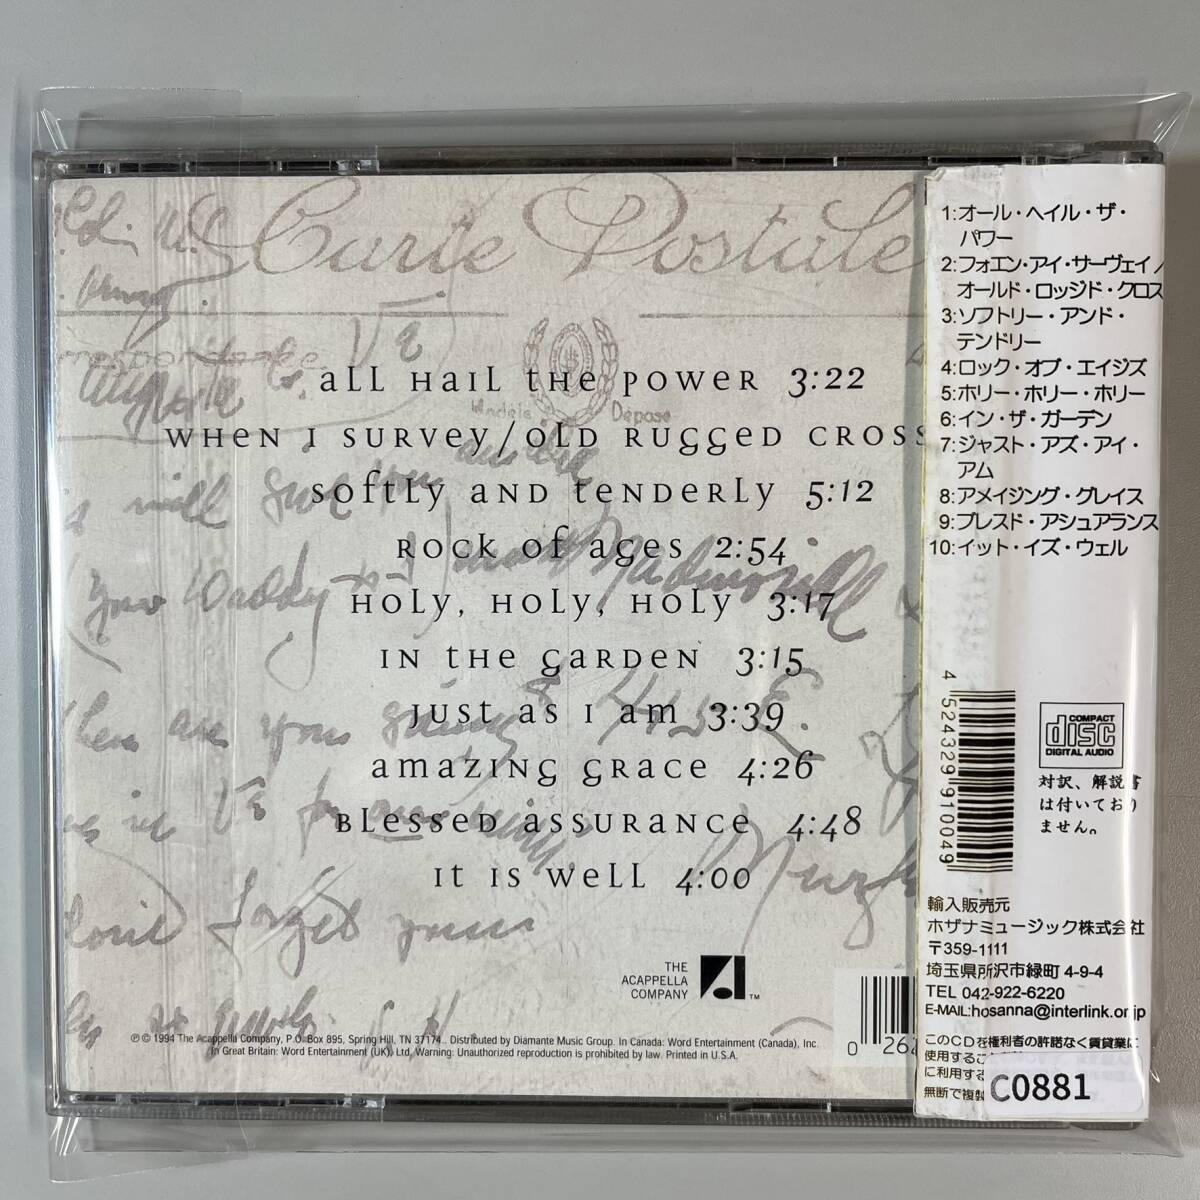 Carte Postale
VE
Modèle Déposé
all hail the power 3:22
when I survey/old rugged cross
softly and tenderly 5:12
rock of ages 2:54
holy, holy, holy 3:17
in the garden 3:15
just as I am 3:39
amazing grace 4:26
blessed assurance 4:48
it is well 4:00
THE
ACAPPELLA
COMPANY
TM
℗ © 1994 The Acappella Company, P.O. Box 895, Spring Hill, TN 37174. Distributed by Diamante Music Group. In Canada: Word Entertainment (Canada), Inc.
In Great Britain: Word Entertainment (UK), Ltd. Warning: Unauthorized reproduction is prohibited by law. Printed in U.S.A.
0 262
1:オール・ヘイル・ザ・
パワー
2:フォエン・アイ・サーヴェイ/
オールド・ロッジド・クロス
3:ソフトリー・アンド・
テンドリー
4:ロック・オブ・エイジズ
5:ホリー・ホリー・ホリー
6:イン・ザ・ガーデン
7:ジャスト・アズ・アイ・
アム
8:アメイジング・グレイス
9:ブレスド・アシュアランス
10:イット・イズ・ウェル
4 524329 910049
COMPACT
disc
DIGITAL AUDIO
対訳、解説書
は付いており
ません。
輸入販売元
ホザナミュージック株式会社
〒359-1111
埼玉県所沢市緑町 4-9-4
TEL 042-922-6220
E-MAIL:hosanna@interlink.or.jp
このCDを権利者の許諾なく賃貸業に
使用するこ
に利用する
無断で複製
C0881